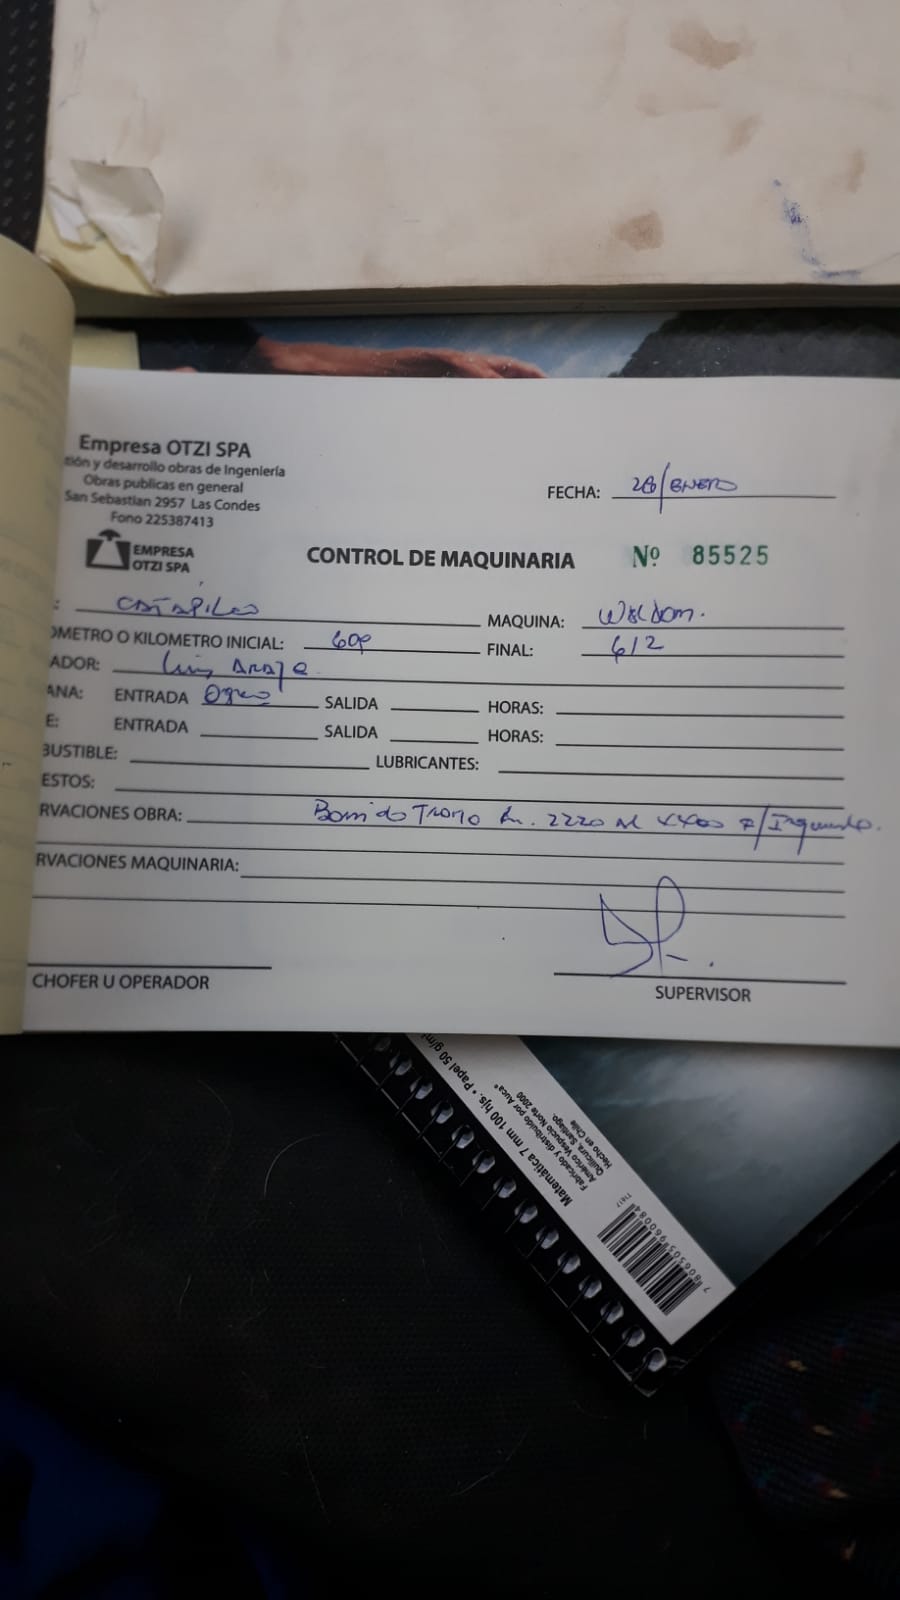 Empresa OTZI SPA
tión y desarrollo obras de Ingeniería
Obras publicas en general
San Sebastian 2957 Las Condes
Fono 225387413
EMPRESA
OTZI SPA
FECHA: /ENERO
CONTROL DE MAQUINARIA Nº 85525
: CATAPILCO MAQUINA: Waldom.
OMETRO O KILOMETRO INICIAL: 609 FINAL: 612
ADOR: Luis Araya
ANA: ENTRADA SALIDA HORAS:
E: ENTRADA SALIDA HORAS:
BUSTIBLE: LUBRICANTES:
ESTOS:
RVACIONES OBRA: Barrido Tramo 2220 al
RVACIONES MAQUINARIA:
CHOFER U OPERADOR
SUPERVISOR
Matemática 7 mm 100 hjs. • Papel 50 g/m
Fabricado y distribuido por Auca®
Américo Vespucio Norte 2000
Quilicura, Santiago.
Hecho en Chile